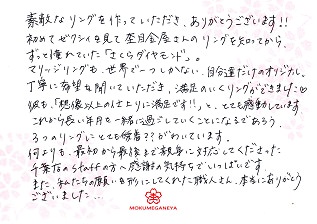 素敵なリングを作っていただき、ありがとうございます!!
初めてゼクシィを見て杢目金屋さんのリングを知ってから、
ずっと憧れていた「さくらダイヤモンド」。
マリッジリングも、世界で一つしかない、自分達だけのオリジナル。
丁寧に希望も聞いていただき、満足のいくリングができました♡
彼も、「想像以上の仕上りに満足です!!」と、とても感動しています。
これから長い年月を一緒に過ごしていくことになるであろう、
3つのリングにとても愛着??がわいています。
何よりも、最初から最後まで親身に対応してくださった
千葉店のstaffの方へ感謝の気持ちでいっぱいです。
また、私たちの願いを形にしてくれた職人さん、本当にありがとう
ございました…
MOKUMEGANEYA